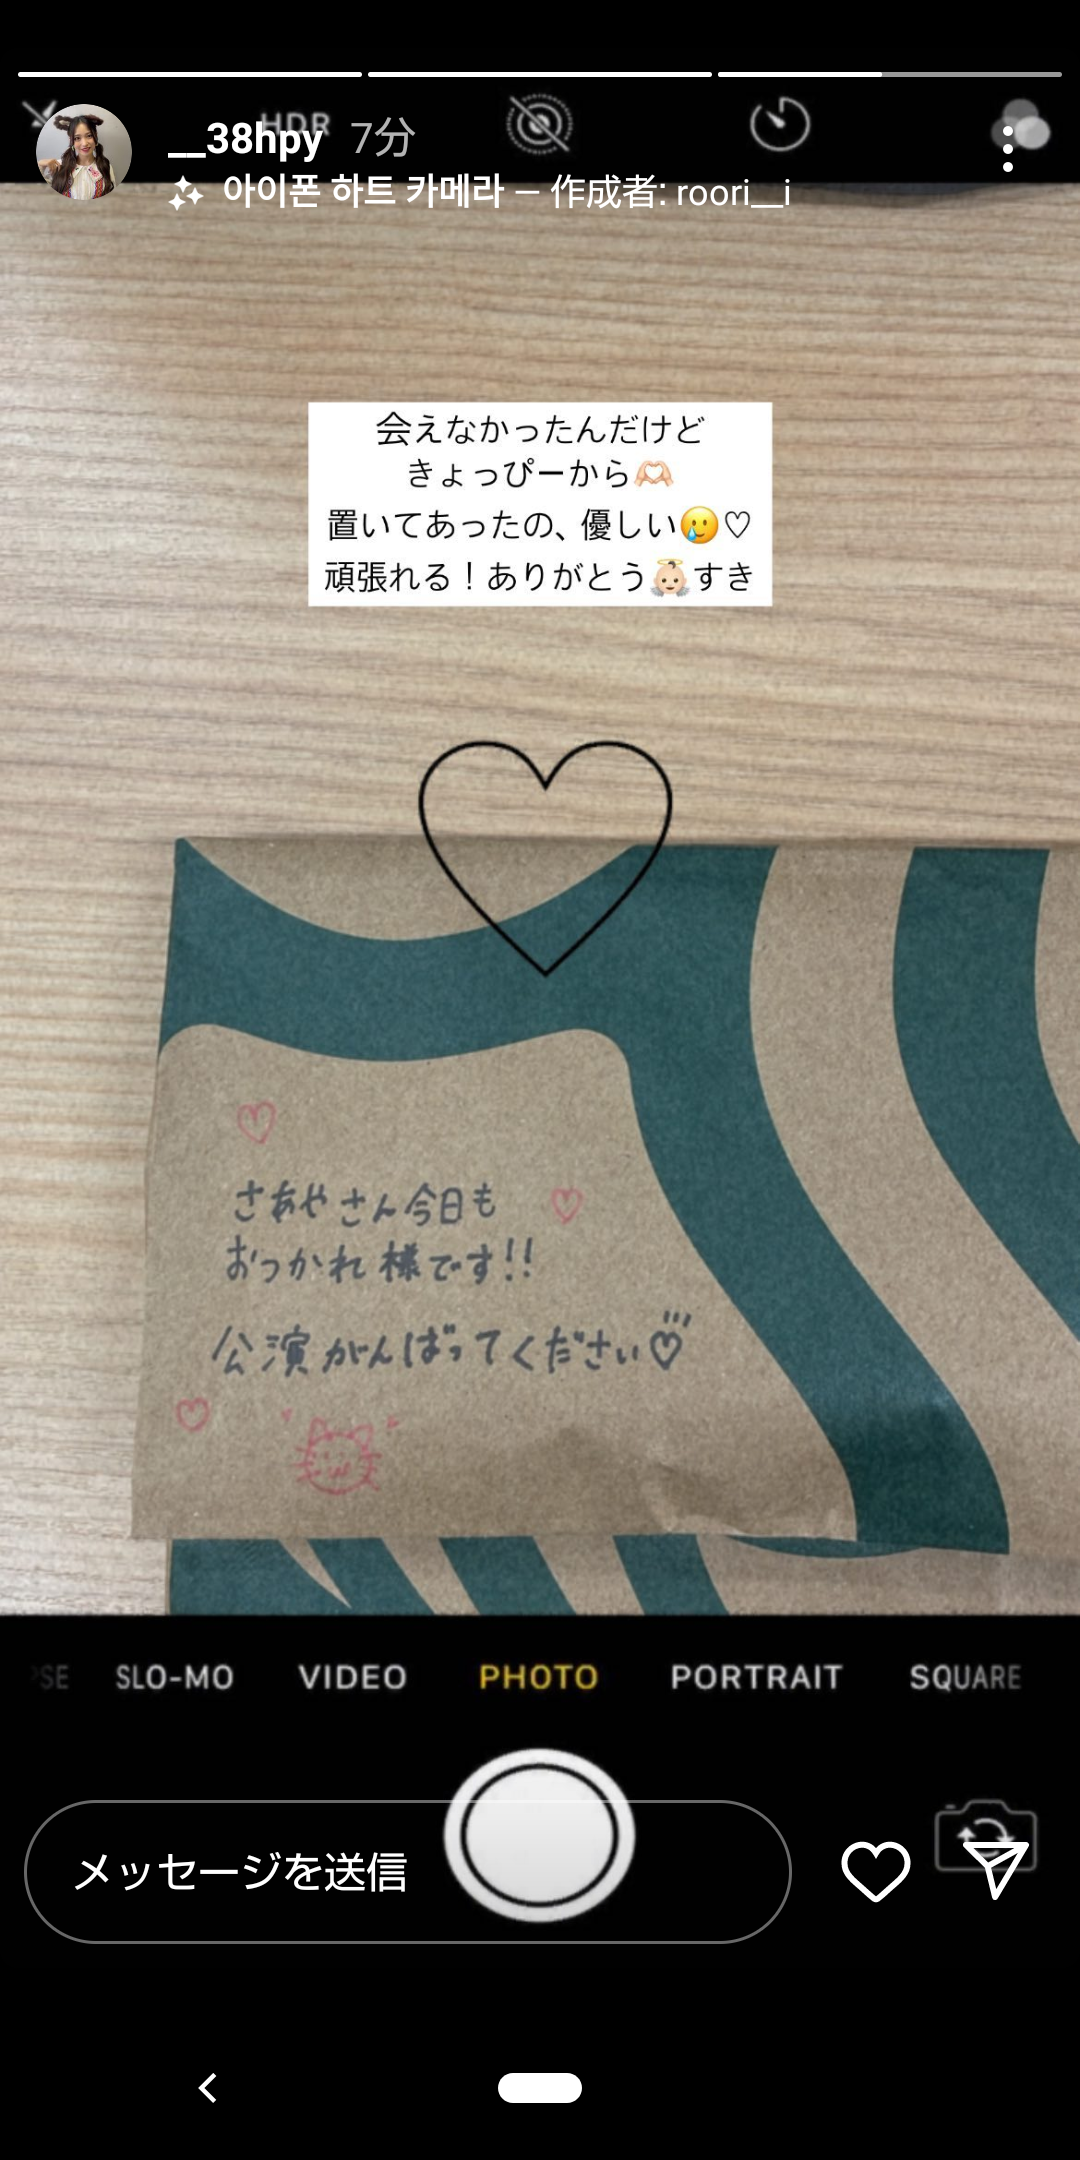 HDR
__38hpy 7分
아이폰 하트 카메라 – 作成者: roori__i
会えなかったんだけど
きょっぴーから🫶🏻
置いてあったの、優しい🥲♡
頑張れる！ありがとう👼🏻すき
さあやさん今日も
おつかれ様です!!
公演がんばってください♡
PSE SLO-MO VIDEO PHOTO PORTRAIT SQUARE
メッセージを送信